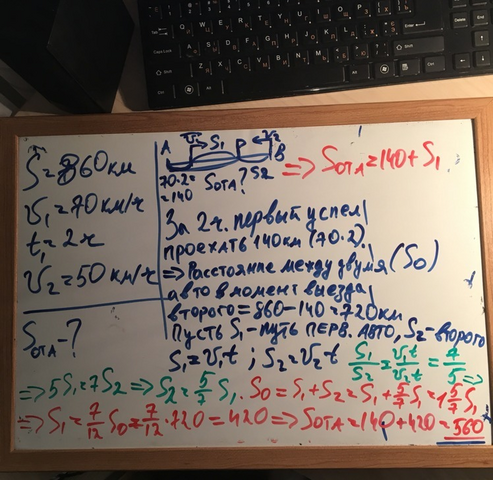 S=860км
V₁=70км/ч
t₁=2ч
V₂=50км/ч
SотА-?
A V₁ S₁ P V₂ B
70·2= SотА? S2
=140
=> SотА=140+S₁
За 2ч. первый успел
проехать 140км (70·2).
=> Расстояние между двумя (S₀)
авто в момент выезда
второго=860-140=720км
Пусть S₁-путь перв. авто, S₂-второго
S₁=V₁t ; S₂=V₂t S₁/S₂=V₁t/V₂t=7/5 =>
=> 5S₁=7S₂ => S₂=5/7 S₁. S₀=S₁+S₂=S₁+5/7 S₁=1 5/7 S₁
=> S₁=7/12 S₀=7/12·720=420 => SотА=140+420=560